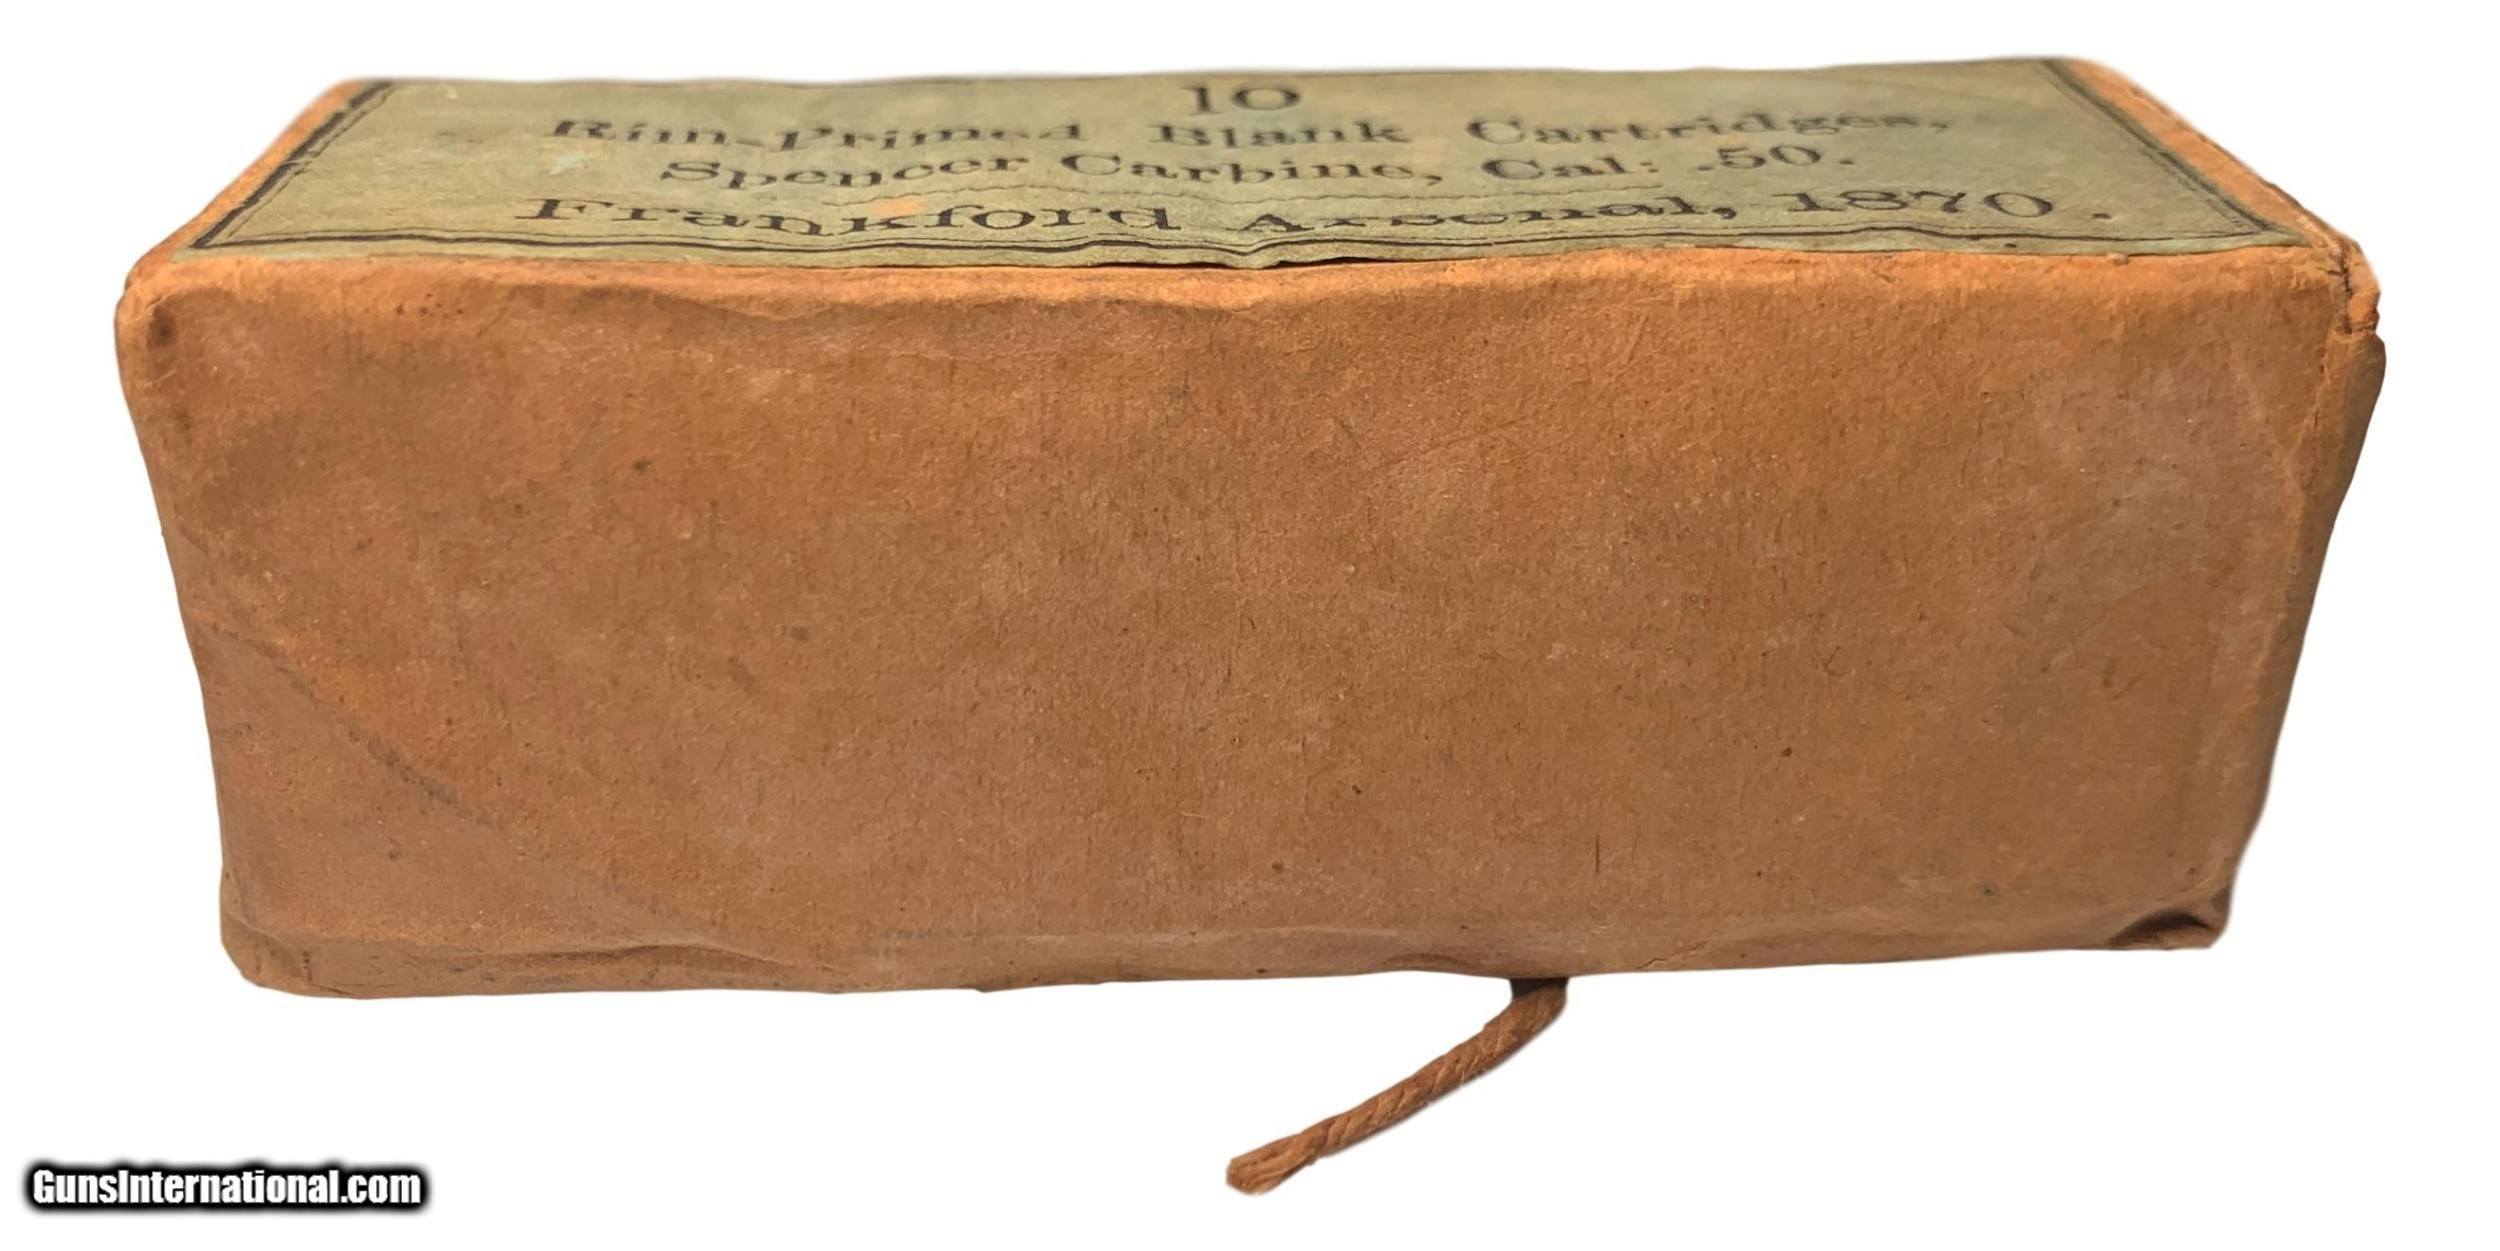 10
Rim-Primed Blank Cartridges,
Spencer Carbine, Cal: .50.
Frankford Arsenal, 1870.
GunsInternational.com